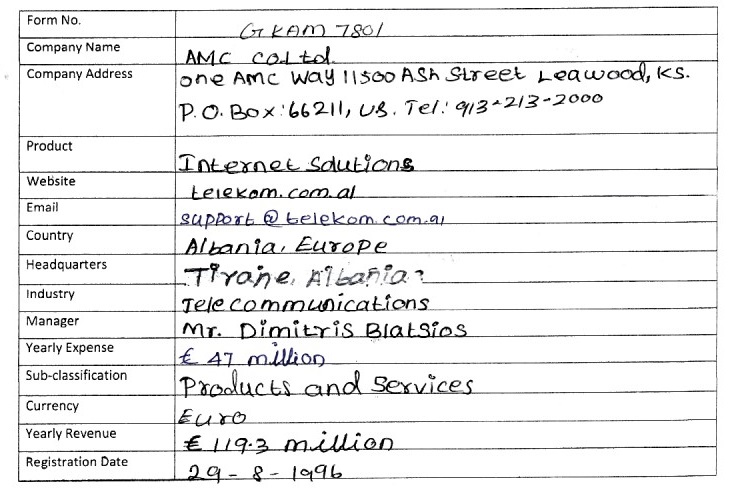 Form No. GKAM 7801
Company Name AMC Co.Ltd.
Company Address one AMC Way 11500 Ash Street Leawood, KS.
P.O. Box: 66211, US. Tel: 913-213-2000
Product Internet Solutions
Website telekom.com.al
Email support@telekom.com.al
Country Albania, Europe
Headquarters Tirane, Albania
Industry Telecommunications
Manager Mr. Dimitris Blatsios
Yearly Expense € 47 million
Sub-classification Products and Services
Currency Euro
Yearly Revenue € 119.3 million
Registration Date 29-8-1996